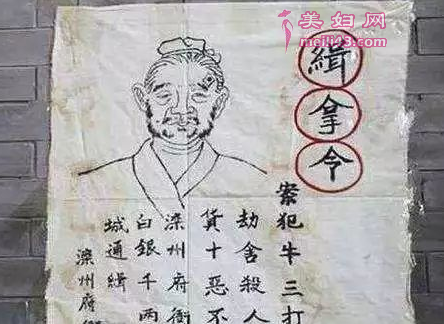 美妇网
meili43.com
緝拿令
案犯牛三打
劫舍殺人
貨十惡不
滦州府衙
白銀千两
城通緝
滦州府